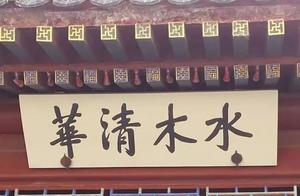 水木清華